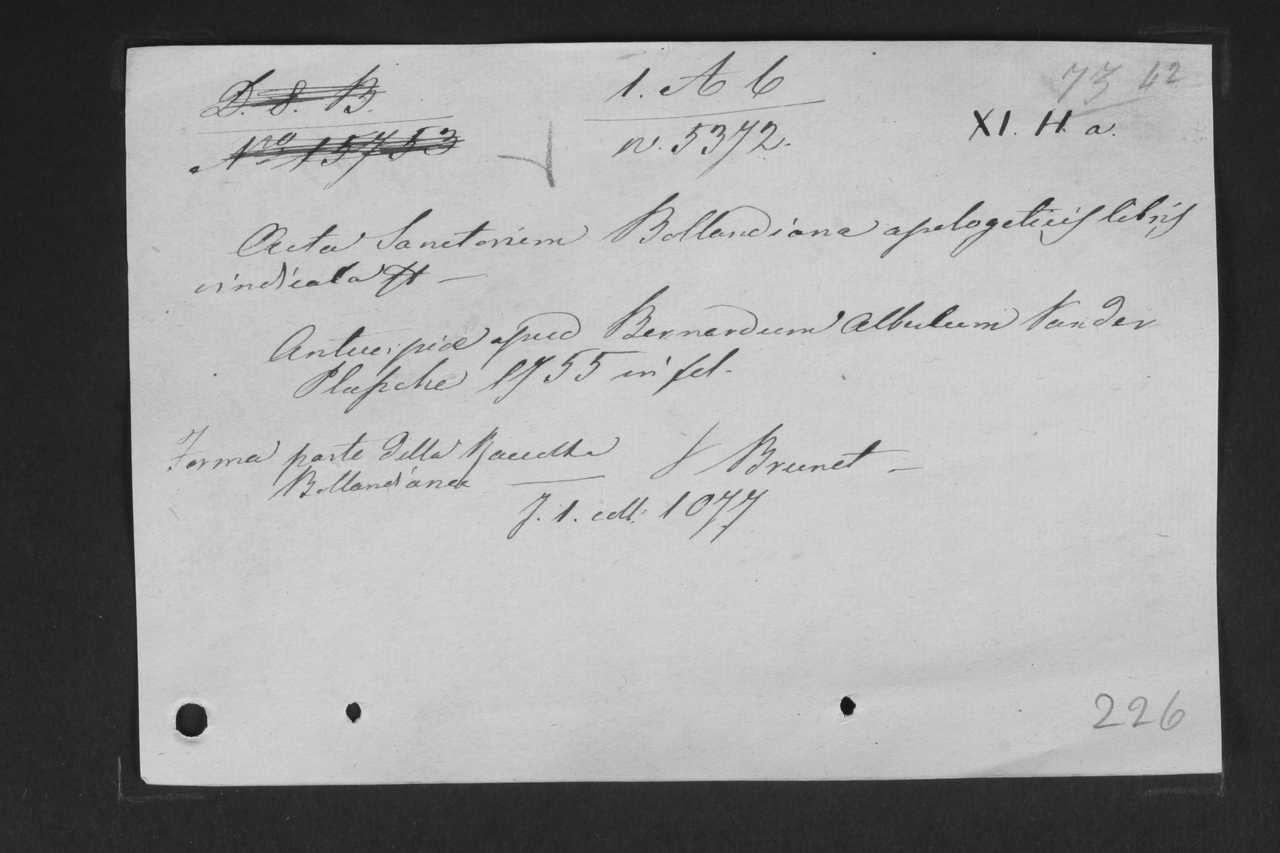 D. 8. B. 1. A 6 73 42
Nro 15753 n. 5372. XI. H. a.
Acta Sanctorum Bollandiana apologeticis libris
vindicata
Antuerpiæ apud Bernardum Albulum Vander
Plassche 1755 in fol.
Forma parte della Raccolta V Brunet
Bollandiana
T. 1. coll: 1077
226